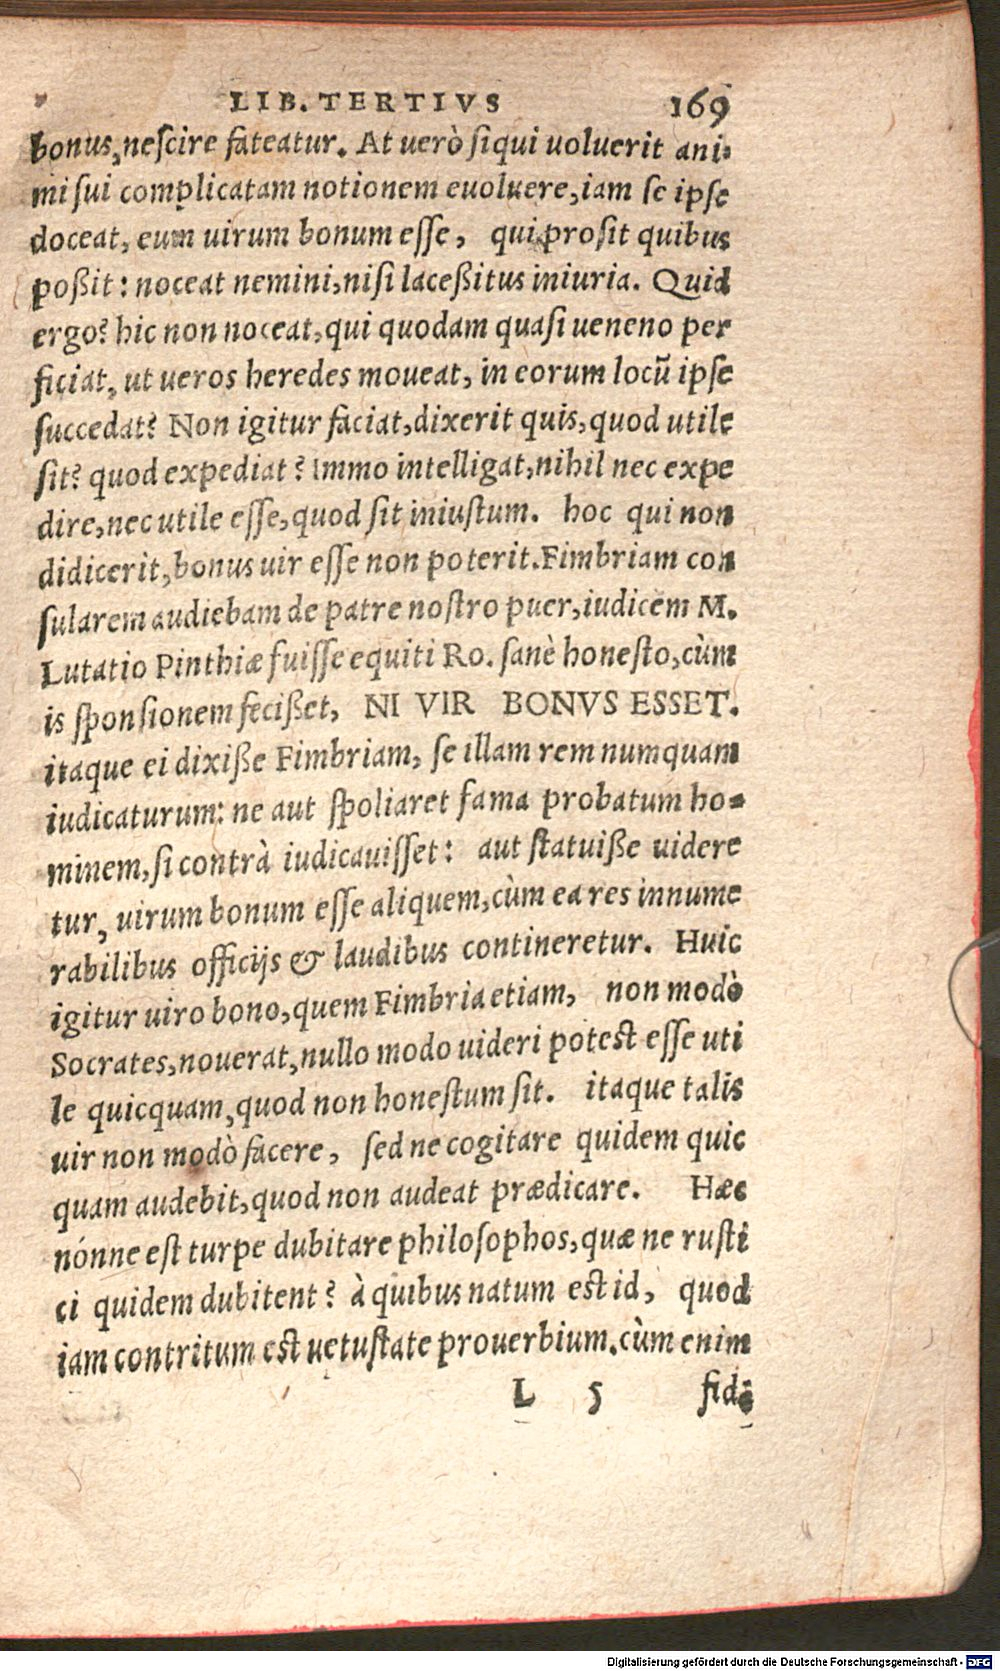 LIB. TERTIVS 169
bonus, neſcire fateatur. At uerò ſiqui uoluerit ani-
mi ſui complicatam notionem euoluere, iam ſe ipſe
doceat, eum uirum bonum eſſe, qui proſit quibus
poßit: noceat nemini, niſi laceßitus iniuria. Quid
ergo? hic non noceat, qui quodam quaſi ueneno per
ficiat, ut ueros heredes moueat, in eorum locū ipſe
ſuccedat? Non igitur faciat, dixerit quis, quod utile
ſit? quod expediat? Immo intelligat, nihil nec expe
dire, nec utile eſſe, quod ſit iniuſtum. hoc qui non
didicerit, bonus uir eſſe non poterit. Fimbriam con
ſularem audiebam de patre noſtro puer, iudicem M.
Lutatio Pinthiæ fuiſſe equiti Ro. ſanè honeſto, cùm
is ſponſionem fecißet, NI VIR BONVS ESSET.
itaque ei dixiße Fimbriam, ſe illam rem numquam
iudicaturum: ne aut ſpoliaret fama probatum ho-
minem, ſi contrà iudicauiſſet: aut ſtatuiße uidere
tur, uirum bonum eſſe aliquem, cùm ea res innume
rabilibus officijs & laudibus contineretur. Huic
igitur uiro bono, quem Fimbria etiam, non modò
Socrates, nouerat, nullo modo uideri poteſt eſſe uti
le quicquam, quod non honeſtum ſit. itaque talis
uir non modò facere, ſed ne cogitare quidem quic
quam audebit, quod non audeat prædicare. Hæc
nónne eſt turpe dubitare philoſophos, quæ ne ruſti
ci quidem dubitent? à quibus natum eſt id, quod
iam contritum eſt uetuſtate prouerbium. cùm enim
L 5 fidē
Digitalisierung gefördert durch die Deutsche Forschungsgemeinschaft - DFG